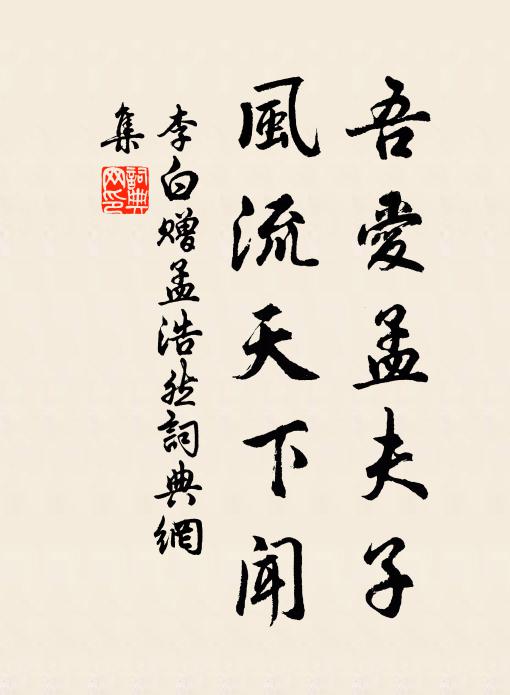 吾愛孟夫子
風流天下聞
李白贈孟浩然詞典網
集
詞典
网印